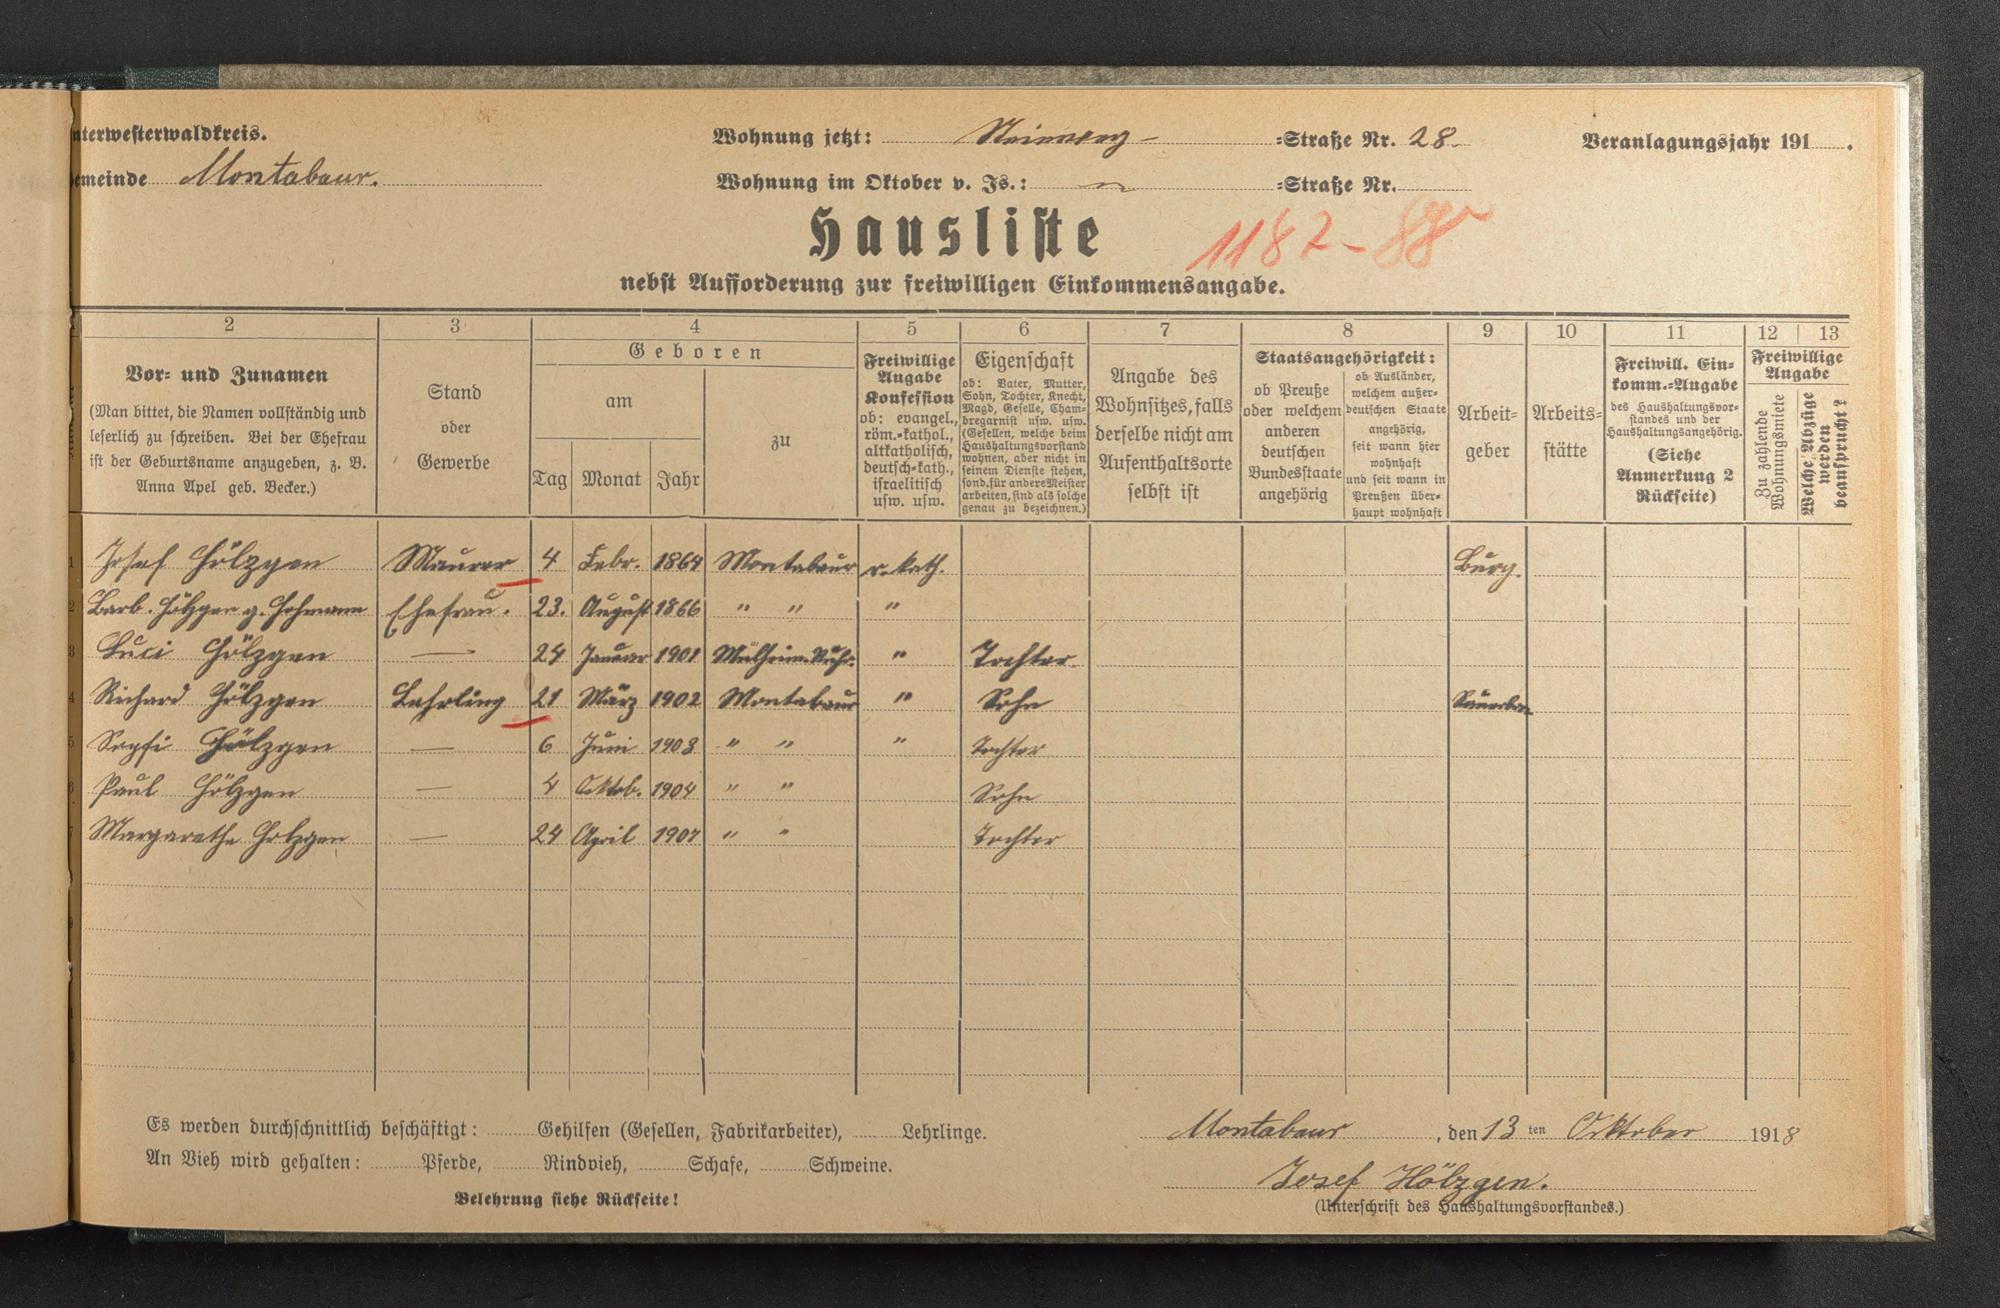 nterwesterwaldkreis.
emeinde Montabaur.
Wohnung jetzt: Steinweg- =Straße Nr. 28.
Wohnung im Oktober v. Js.: =Straße Nr.
Veranlagungsjahr 191 .
Hausliste
1182-88
nebst Aufforderung zur freiwilligen Einkommensangabe.
2 3 4 5 6 7 8 9 10 11 12 13
Vor- und Zunamen
(Man bittet, die Namen vollständig und
leserlich zu schreiben. Bei der Ehefrau
ist der Geburtsname anzugeben, z. B.
Anna Apel geb. Becker.)
Stand
oder
Gewerbe
Geboren
am
Tag Monat Jahr
zu
Freiwillige
Angabe
Konfession
ob: evangel.,
röm.-kathol.,
altkatholisch,
deutsch-kath.,
israelitisch
usw. usw.
Eigenschaft
ob: Vater, Mutter,
Sohn, Tochter, Knecht,
Magd, Geselle, Cham-
bregarnist usw. usw.
(Gesellen, welche beim
Haushaltungsvorstand
wohnen, aber nicht in
seinem Dienste stehen,
sond. für andere Meister
arbeiten, sind als solche
genau zu bezeichnen.)
Angabe des
Wohnsitzes, falls
derselbe nicht am
Aufenthaltsorte
selbst ist
Staatsangehörigkeit:
ob Preuße
oder welchem
anderen
deutschen
Bundesstaate
angehörig
ob Ausländer,
welchem außer-
deutschen Staate
angehörig,
seit wann hier
wohnhaft
und seit wann in
Preußen über-
haupt wohnhaft
Arbeit-
geber
Arbeits-
stätte
Freiwill. Ein-
komm.-Angabe
des Haushaltungsvor-
standes und der
Haushaltungsangehörig.
(Siehe
Anmerkung 2
Rückseite)
Freiwillige
Angabe
Zu zahlende
Wohnungsmiete
Welche Abzüge
werden
beansprucht?
1 Josef Hölzgen Maurer 4 Febr. 1864 Montabaur r. kath. Burg.
2 Barb. Hölzgen g. Hofmann Ehefrau. 23. August 1866 " " "
3 Luci Hölzgen — 24 Januar 1901 Mülheim-Ruhr. " Tochter
4 Richard Hölzgen Lehrling 21 März 1902 Montabaur " Sohn
5 Sopfi Hölzgen — 6 Juni 1903 " " " Tochter
6 Paul Hölzgen — 4 Oktob. 1904 " " Sohn
7 Margarethe Holzgen — 24 April 1907 " " Tochter
Es werden durchschnittlich beschäftigt: Gehilfen (Gesellen, Fabrikarbeiter), Lehrlinge.
An Vieh wird gehalten: Pferde, Rindvieh, Schafe, Schweine.
Belehrung siehe Rückseite!
Montabaur, den 13 ten Oktober 1918
Josef Hölzgen.
(Unterschrift des Haushaltungsvorstandes.)